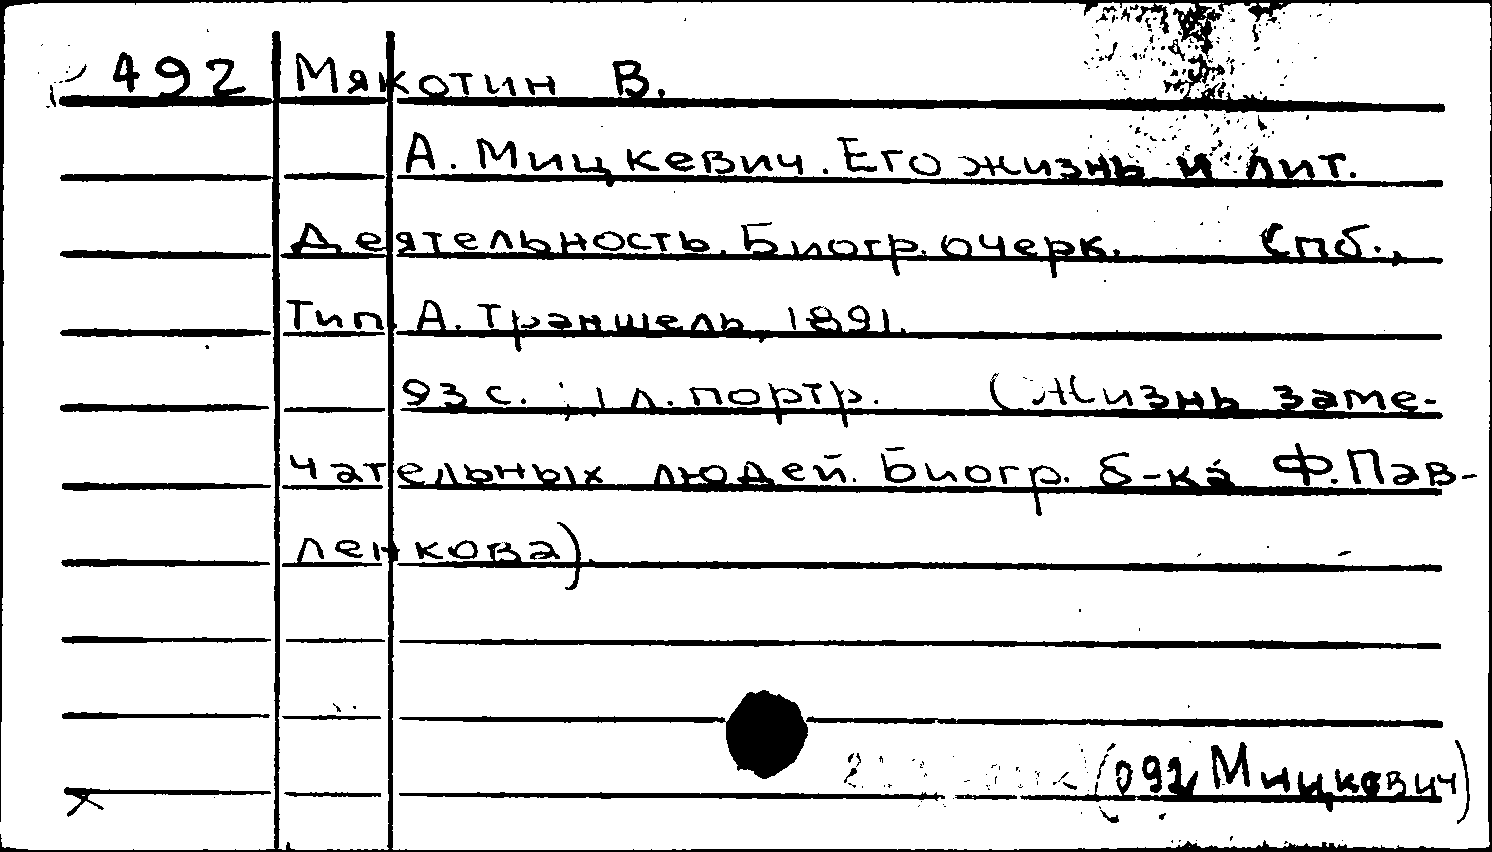 492 Мякотин В.
А. Мицкевич. Его жизнь и лит.
деятельность. Биогр. очерк. Спб.,
Тип. А. Траншель, 1891.
93 с.; 1 л. портр. (Жизнь заме-
чательных людей. Биогр. б-ка Ф. Пав-
ленкова).
(092 Мицкевич)